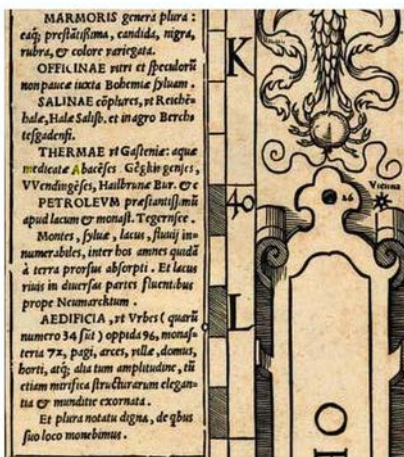 MARMORIS genera plura :
eaq; præstãtißima, candida, nigra,
rubra, & colore variegata.
OFFICINAE vitri et speculorũ
non paucæ iuxta Bohemiæ syluam.
SALINAE cõplures, vt Reichẽ-
halæ, Halæ Salisb. et in agro Berchto
tesgadensi.
THERMAE vt Gasteniæ: aquæ
medicatæ Abacẽses Gögkingenses,
VVendingẽses, Hailbrunæ Bur. & c
PETROLEVM præstantiss.mũ
apud lacum & monast. Tegernsee.
Montes, syluæ, lacus, fluuij in-
numerabiles, inter hos amnes quidã
à terra prorsus absorpti. Et lacus
riuis in diuersas partes fluentibus
prope Neumarcktum.
AEDIFICIA, vt Vrbes ( quarũ
numero 34 sũt ) oppida 96, monas-
teria 72, pagi, arces, villæ, domus,
horti, atq; alia tum amplitudine, tũ
etiam mirifica structurarum elegan-
tia & munditie exornata.
Et plura notatu digna, de qbus
suo loco monebimus.
K
40
L
26
Vienna
O